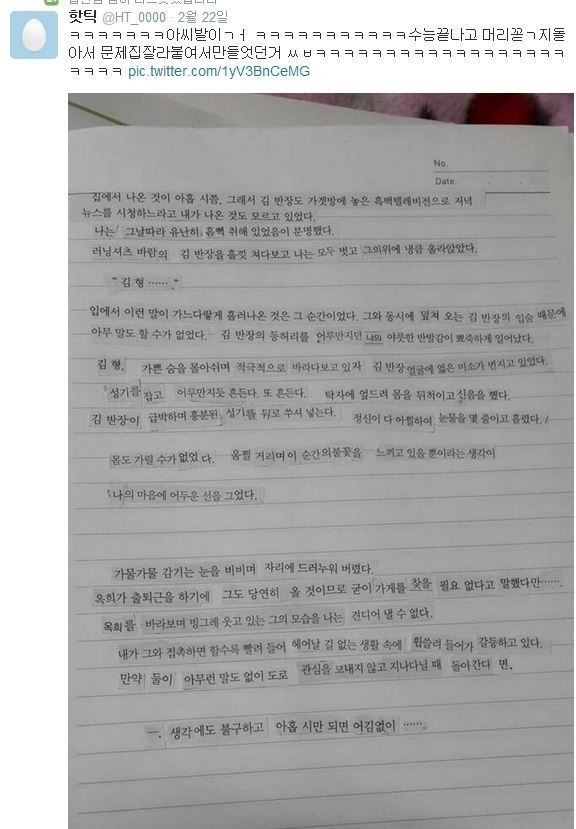 핫틱 @HT_0000 · 2월 22일
ㅋㅋㅋㅋㅋㅋㅋ아씨발이ㄱㅓ ㅋㅋㅋㅋㅋㅋㅋㅋㅋㅋㅋ수능끝나고 머리꼳ㄱ지돌
아서 문제집잘라붙여서만들엇던거 ㅆㅂㅋㅋㅋㅋㅋㅋㅋㅋㅋㅋㅋㅋㅋㅋㅋㅋㅋㅋ
ㅋㅋㅋㅋ pic.twitter.com/1yV3BnCeMG
No.
Date.
집에서 나온 것이 아홉 시쯤, 그래서 김 반장도 가겟방에 놓은 흑백텔레비전으로 저녁
뉴스를 시청하느라고 내가 나온 것도 모르고 있었다.
나는 그날따라 유난히 흠뻑 취해 있었음이 분명했다.
러닝셔츠 바람의 김 반장을 흘낏 쳐다보고 나는 모두 벗고 그의위에 냉큼 올라앉았다.
“ 김 형 ……. ”
입에서 이런 말이 가느다랗게 흘러나온 것은 그 순간이었다. 그와 동시에 덮쳐 오는 김 반장의 입술 때문에
아무 말도 할 수가 없었다. 김 반장의 등허리를 어루만지던 나의 야릇한 반발감이 뾰족하게 일어났다.
김 형. 가쁜 숨을 몰아쉬며 적극적으로 바라다보고 있자 김 반장 얼굴에 엷은 미소가 번지고 있었다.
성기를 잡고 어루만지듯 흔든다. 또 흔든다. 탁자에 엎드려 몸을 뒤척이고 신음을 했다.
김 반장이 급박하며 흥분된 성기를 뒤로 쑤셔 넣는다. 정신이 다 아찔하여 눈물을 몇 줄이고 흘렸다.
몸도 가릴 수가 없었 다. 움찔 거리며이 순간의불꽃을 느끼고 있을 뿐이라는 생각이
나의 마음에 어두운 선을 그었다.
가물가물 감기는 눈을 비비며 자리에 드러누워 버렸다.
옥희가 출퇴근을 하기에 그도 당연히 올 것이므로 굳이 가게를 찾을 필요 없다고 말했다만…….
옥희를 바라보며 빙그레 웃고 있는 그의 모습을 나는 견디어 낼 수 없다.
내가 그와 접촉하면 할수록 빨려 들어 헤어날 길 없는 생활 속에 휩쓸려 들어가 갈등하고 있다.
만약 둘이 아무런 말도 없이 도로 관심을 보내지 않고 지나다닐 때 돌아간다 면.
ㅡ. 생각에도 불구하고 아홉 시만 되면 어김없이 …….